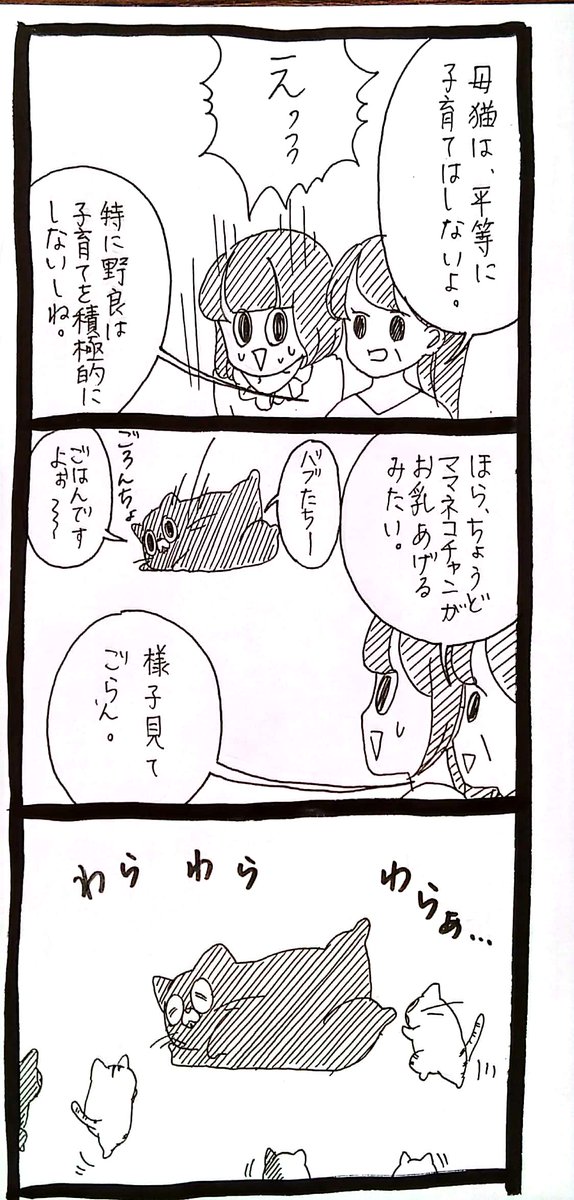 母猫は、平等に
子育てはしないよ。
えっっっ
特に野良は
子育てを積極的に
しないしね。
ほら、ちょうど
ママネコチャンが
お乳あげる
みたい。
バブたちー
ごろんちょ
ごはんです
よぉ〜〜
様子見て
ごらん。
わらぁ…
わら
わら